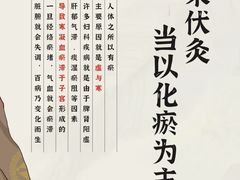 伏灸
当以化瘀为主
人体之所以有瘀
主要原因就是虚与寒
许多妇科疾病就是由于脾肾阳虚
肝郁气滞、痰湿瘀阻等因素
导致寒凝血瘀滞于子宫形成的
一旦经络瘀堵，气血就会瘀滞
脏腑就会失调，百病乃变化而生